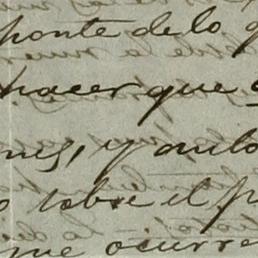 ponte de lo q
hacer que
ones, y aulo
o sobre el p
que ocurre